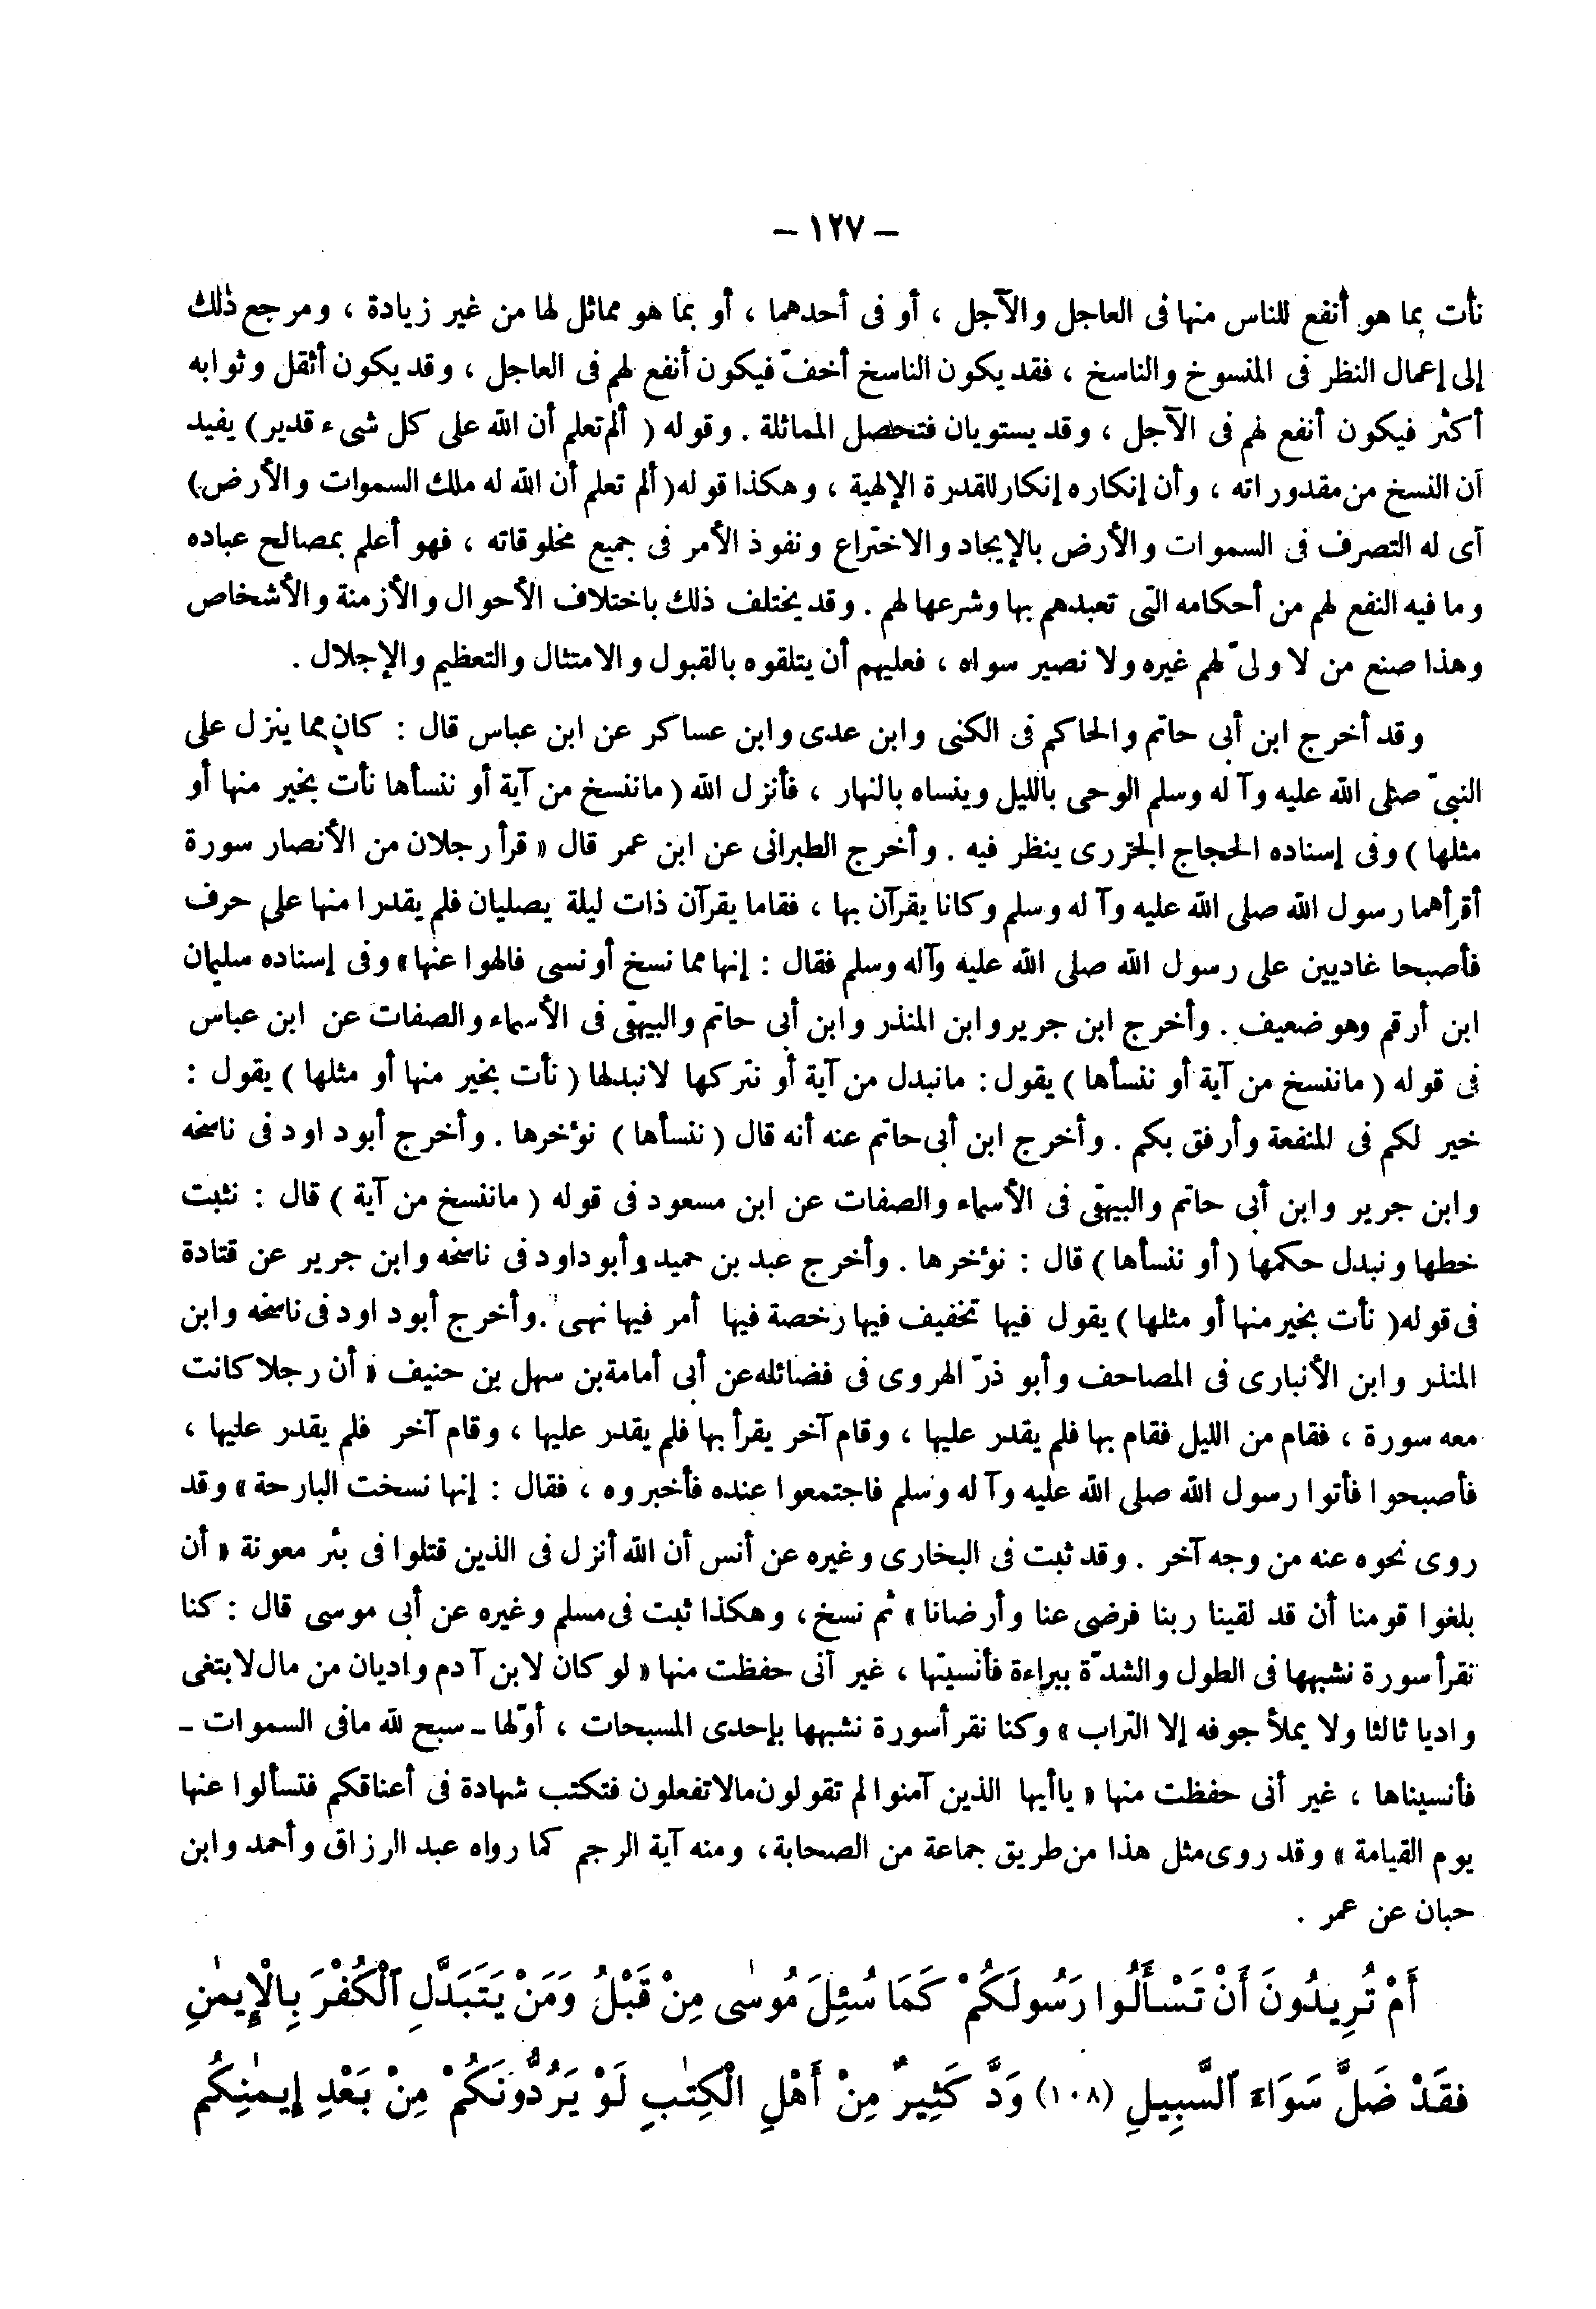 – ١٢٧ –
نأت بما هو أنفع للناس منها فى العاجل والآجل ، أو فى أحدهما ، أو بما هو مماثل لها من غير زيادة ، ومرجع ذلك
إلى إعمال النظر فى المنسوخ والناسخ ، فقد يكون الناسخ أخفّ فيكون أنفع لهم فى العاجل ، وقد يكون أثقل وثوابه
أكثر فيكون أنفع لهم فى الآجل ، وقد يستويان فتحصل المماثلة . وقوله ( ألم تعلم أن الله على كل شىء قدير ) يفيد
أن النسخ من مقدوراته ، وأن إنكاره إنكار للقدرة الإلهية ، وهكذا قوله ( ألم تعلم أن الله له ملك السموات والأرض )
أى له التصرف فى السموات والأرض بالإيجاد والاختراع ونفوذ الأمر فى جميع مخلوقاته ، فهو أعلم بمصالح عباده
وما فيه النفع لهم من أحكامه التى تعبدهم بها وشرعها لهم . وقد يختلف ذلك باختلاف الأحوال والأزمنة والأشخاص
وهذا صنع من لا ولىّ لهم غيره ولا نصير سواه ، فعليهم أن يتلقوه بالقبول والامتثال والتعظيم والإجلال .
وقد أخرج ابن أبى حاتم والحاكم فى الكنى وابن عدى وابن عساكر عن ابن عباس قال : كان مما ينزل على
النبىّ صلى الله عليه وآله وسلم الوحى بالليل وينساه بالنهار ، فأنزل الله ( ماننسخ من آية أو ننسأها نأت بخير منها أو
مثلها ) وفى إسناده الحجاج الجزرى ينظر فيه . وأخرج الطبرانى عن ابن عمر قال « قرأ رجلان من الأنصار سورة
أقرأهما رسول الله صلى الله عليه وآله وسلم وكانا يقرآن بها ، فقاما يقرآن ذات ليلة يصليان فلم يقدرا منها على حرف
فأصبحا غاديين على رسول الله صلى الله عليه وآله وسلم فقال : إنها مما نسخ أو نسى فالهوا عنها » وفى إسناده سليمان
ابن أرقم وهو ضعيف . وأخرج ابن جرير وابن المنذر وابن أبى حاتم والبيهقى فى الأسماء والصفات عن ابن عباس
فى قوله ( ماننسخ من آية أو ننسأها ) يقول : مانبدل من آية أو نتركها لانبدلها ( نأت بخير منها أو مثلها ) يقول :
خير لكم فى المنفعة وأرفق بكم . وأخرج ابن أبى حاتم عنه أنه قال ( ننسأها ) نؤخرها . وأخرج أبو داود فى ناسخه
وابن جرير وابن أبى حاتم والبيهقى فى الأسماء والصفات عن ابن مسعود فى قوله ( ماننسخ من آية ) قال : نثبت
خطها ونبدل حكمها ( أو ننسأها ) قال : نؤخرها . وأخرج عبد بن حميد وأبو داود فى ناسخه وابن جرير عن قتادة
فى قوله ( نأت بخير منها أو مثلها ) يقول فيها تخفيف فيها رخصة فيها أمر فيها نهى . وأخرج أبو داود فى ناسخه وابن
المنذر وابن الأنبارى فى المصاحف وأبو ذرّ الهروى فى فضائله عن أبى أمامة بن سهل بن حنيف « أن رجلا كانت
معه سورة ، فقام من الليل فقام بها فلم يقدر عليها ، وقام آخر يقرأ بها فلم يقدر عليها ، وقام آخر فلم يقدر عليها ،
فأصبحوا فأتوا رسول الله صلى الله عليه وآله وسلم فاجتمعوا عنده فأخبروه ، فقال : إنها نسخت البارحة » وقد
روى نحوه عنه من وجه آخر . وقد ثبت فى البخارى وغيره عن أنس أن الله أنزل فى الذين قتلوا فى بئر معونة « أن
بلغوا قومنا أن قد لقينا ربنا فرضى عنا وأرضانا » ثم نسخ ، وهكذا ثبت فى مسلم وغيره عن أبى موسى قال : كنا
نقرأ سورة نشبهها فى الطول والشدّة ببراءة فأنسيتها ، غير أنى حفظت منها « لو كان لابن آدم واديان من مال لابتغى
واديا ثالثا ولا يملأ جوفه إلا التراب » وكنا نقرأ سورة نشبهها بإحدى المسبحات ، أوّلها ـ سبح لله مافى السموات ـ
فأنسيناها ، غير أنى حفظت منها « ياأيها الذين آمنوا لم تقولون مالاتفعلون فتكتب شهادة فى أعناقكم فتسألوا عنها
يوم القيامة » وقد روى مثل هذا من طريق جماعة من الصحابة ، ومنه آية الرجم كما رواه عبد الرزاق وأحمد وابن
حبان عن عمر .
أَمْ تُرِيدُونَ أَنْ تَسْأَلُوا رَسُولَكُمْ كَمَا سُئِلَ مُوسٰى مِنْ قَبْلُ وَمَنْ يَتَبَدَّلِ ٱلْكُفْرَ بِالْإِيمٰنِ
فَقَدْ ضَلَّ سَوَاءَ ٱلسَّبِيلِ (١٠٨) وَدَّ كَثِيرٌ مِنْ أَهْلِ الْكِتٰبِ لَوْ يَرُدُّونَكُمْ مِنْ بَعْدِ إِيمٰنِكُم